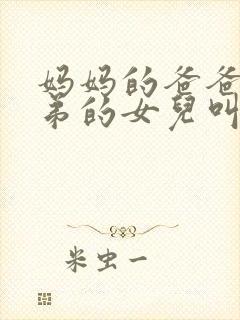 妈妈的爸爸
弟的女兒叫
米虫一